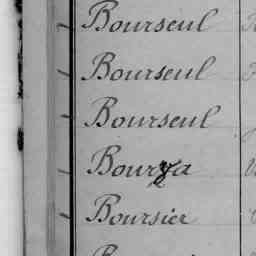 Bourseul
Bourseul
Bourseul
Bourza
Boursier